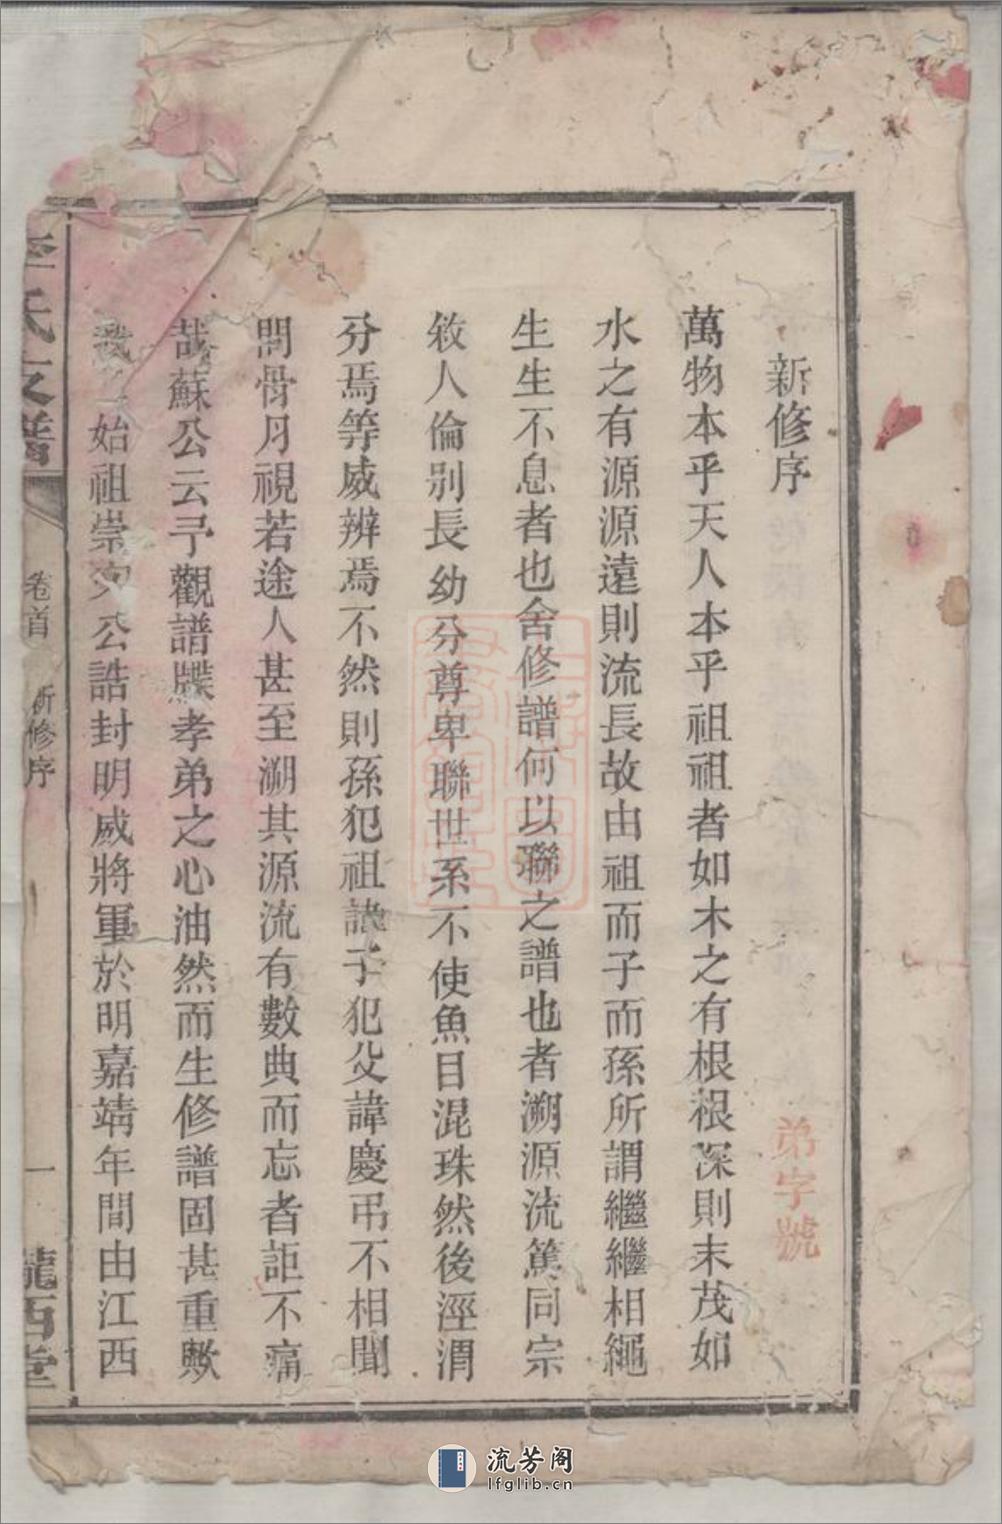 新修序
弟字號
萬物本乎天人本乎祖祖者如木之有根根深則末茂如
水之有源源遠則流長故由祖而子而孫所謂繼繼相繩
生生不息者也舍修譜何以聯之譜也者溯源流篤同宗
敘人倫別長幼分尊卑聯世系不使魚目混珠然後涇渭
分焉等威辨焉不然則孫犯祖諱子犯父諱慶弔不相聞
問骨月視若途人甚至溯其源流有數典而忘者詎不痛
哉蘇公云予觀譜牒孝弟之心油然而生修譜固甚重歟
我 始祖崇 公誥封明威將軍於明嘉靖年間由江西
李氏支譜
卷首
新修序
一
隴西堂
流芳阁
lfglib.cn